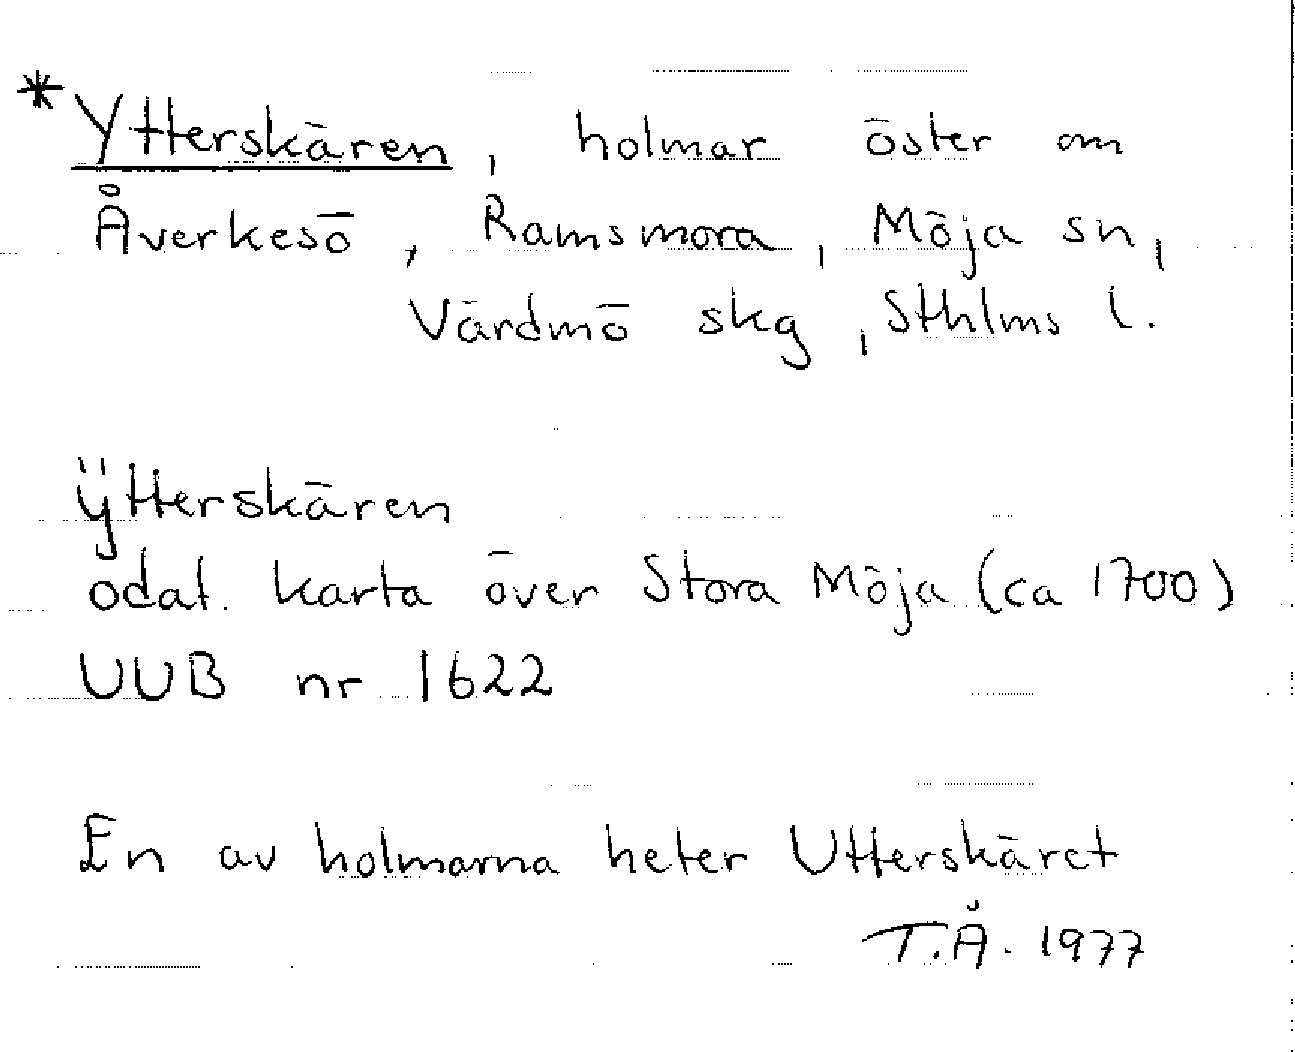 *Ytterskären, holmar öster om
Åverkesö, Ramsmora, Möja sn,
Värdmö skg, Sthlms l.
ÿtterskären
odat. karta över Stora Möja (ca 1700)
UUB nr 1622
En av holmarna heter Utterskäret
T.Å. 1977